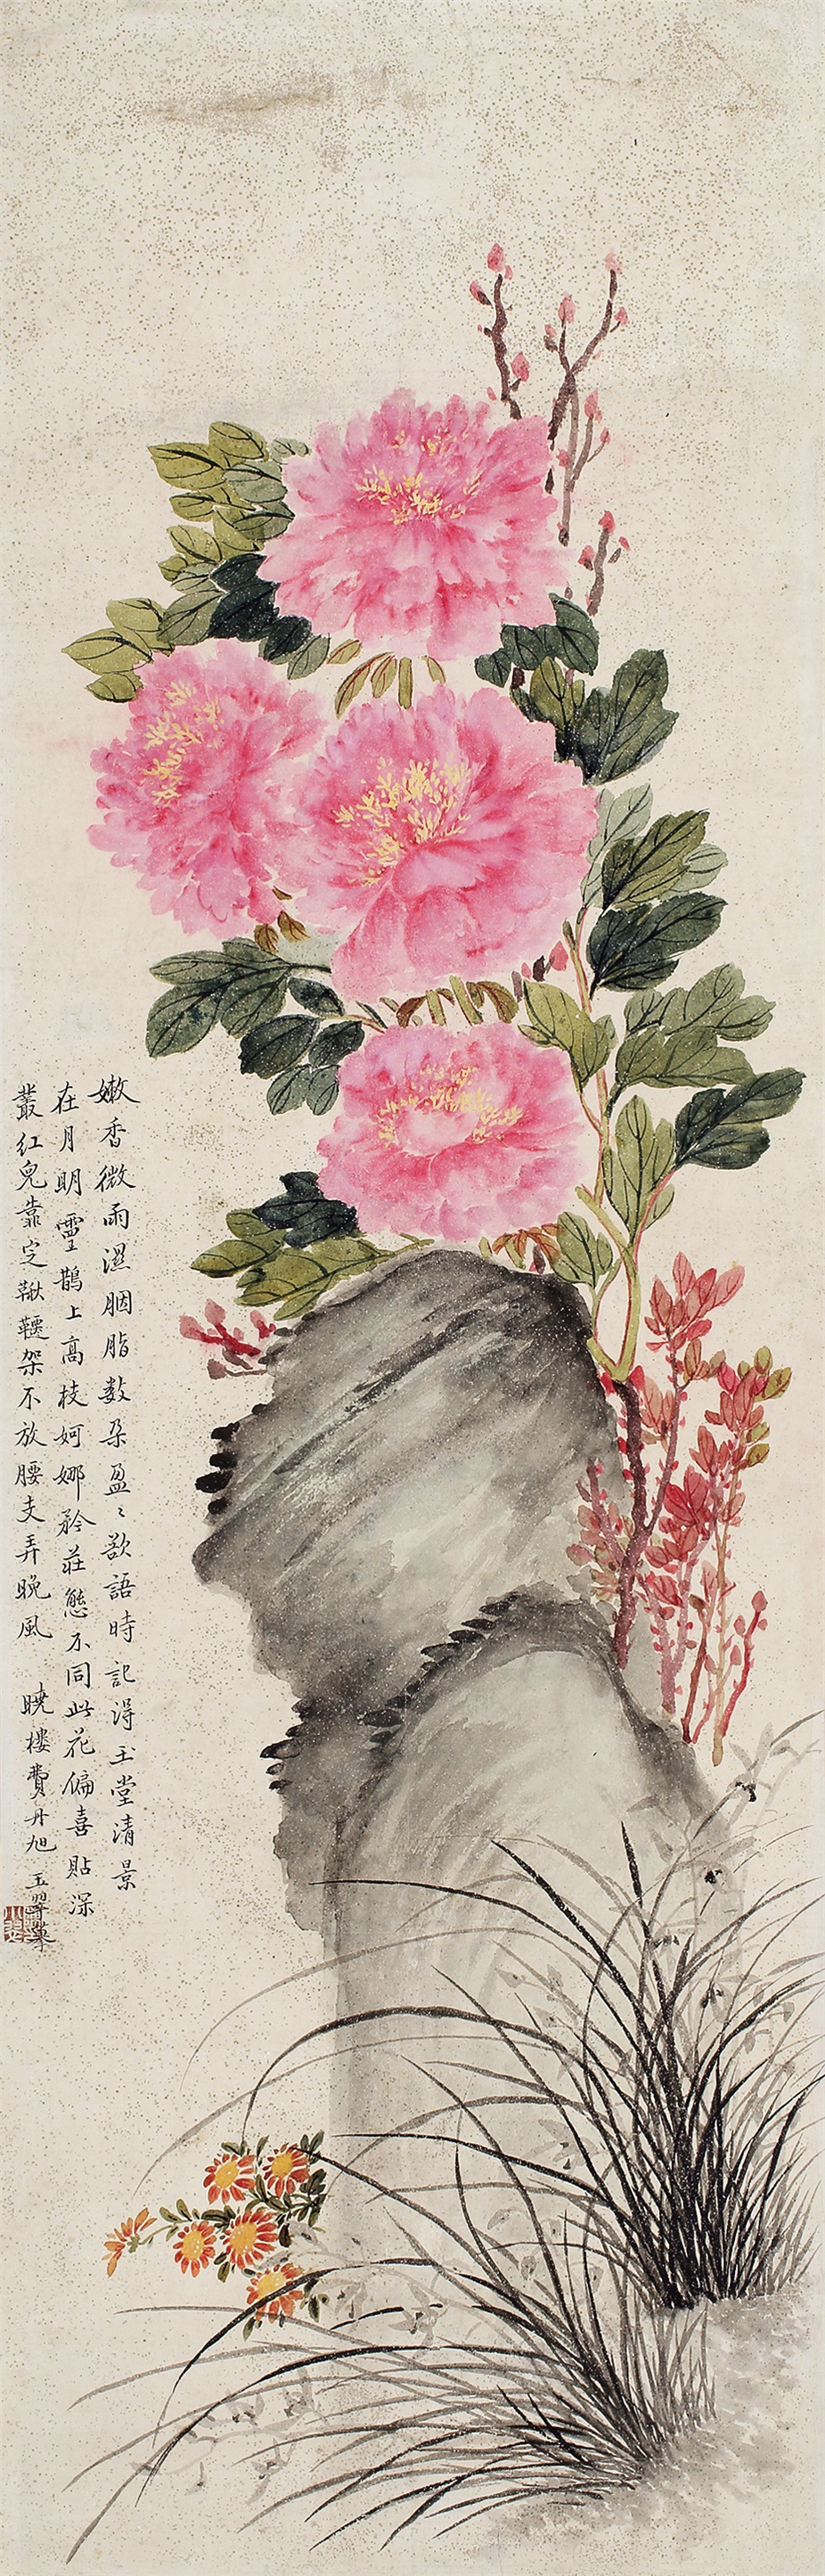 嫩香微雨濕胭脂數朶盈〻欲語時記得玉堂清景
在月明靈鵲上高枝婀娜矜莊態不同此花偏喜貼深
叢紅兒靠定鞦韆架不放腰支弄晚風　曉樓費丹旭　玉翠摹